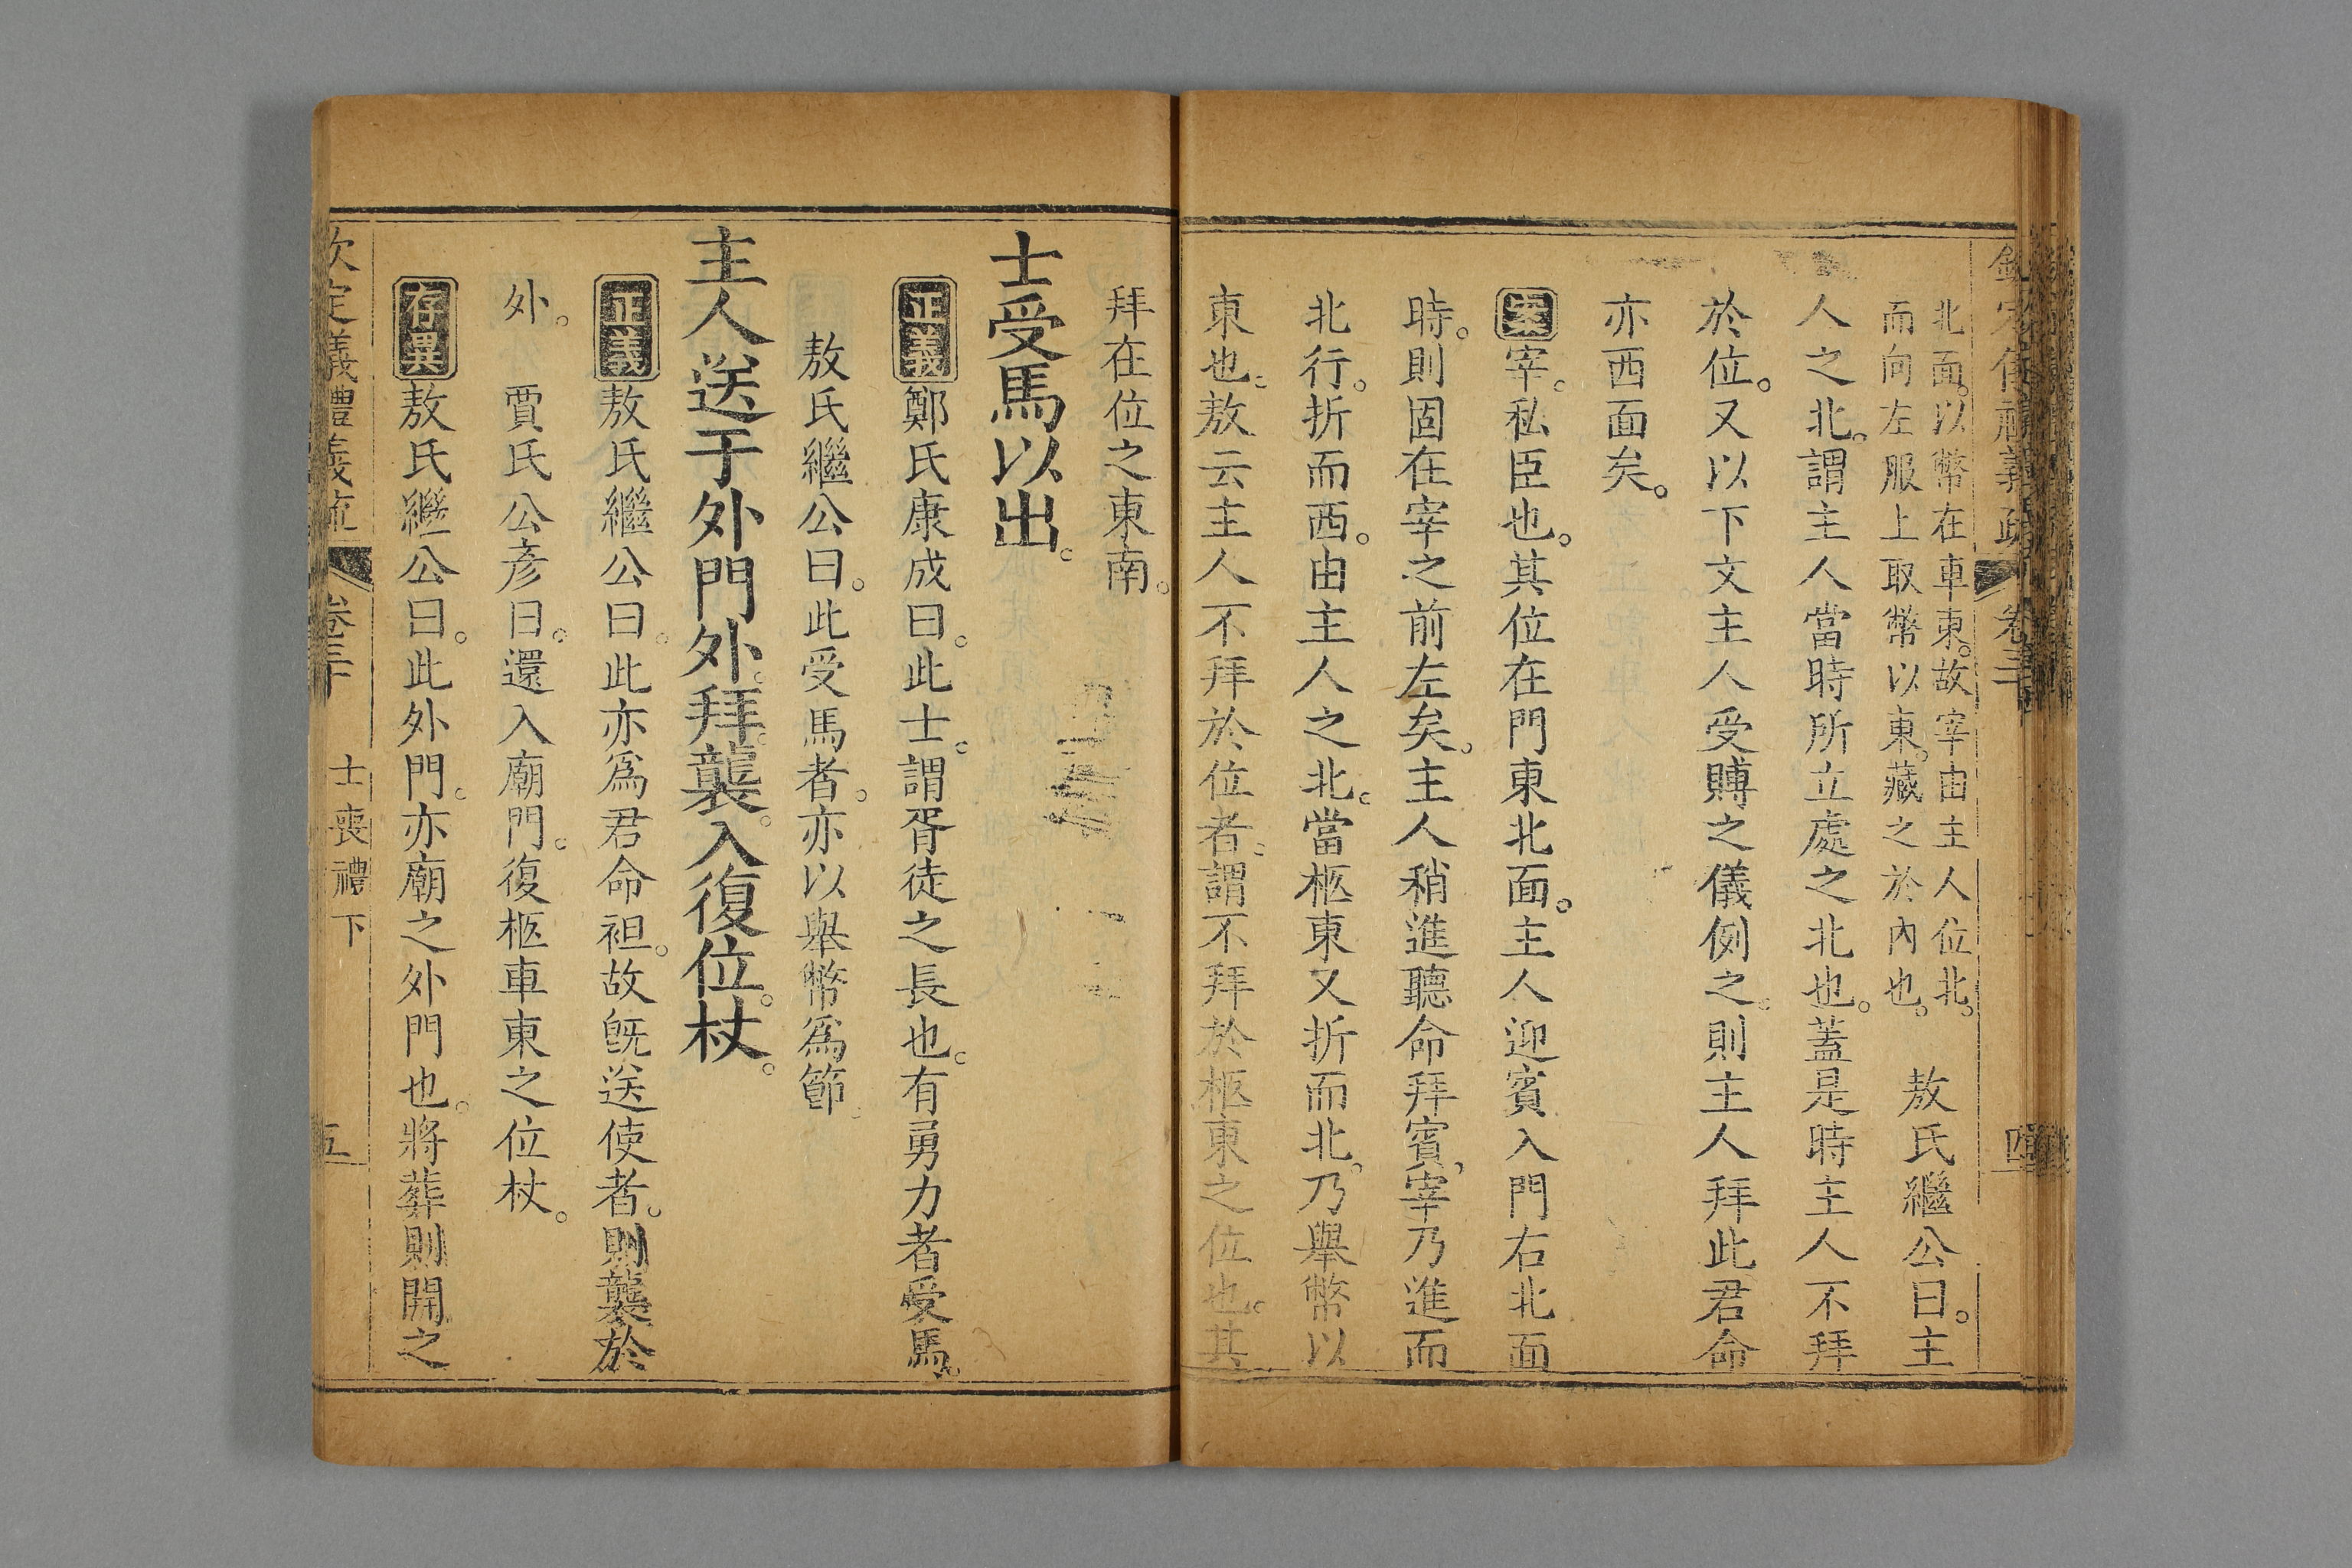 欽定儀禮義疏 卷三十 四
北面。以幣在車東。故宰由主人位北。
而向左服上取幣以東。藏之於內也。
敖氏繼公曰。主
人之北。謂主人當時所立處之北也。蓋是時主人不拜
於位。又以下文主人受賻之儀例之。則主人拜此君命
亦西面矣。
案宰。私臣也。其位在門東北面。主人迎賓入門右北面
時。則固在宰之前左矣。主人稍進聽命拜賓,宰乃進而
北行。折而西。由主人之北。當柩東又折而北。乃舉幣以
東也。敖云主人不拜於位者。謂不拜於柩東之位也。其
拜在位之東南。
士受馬以出。
正義鄭氏康成曰。此士。謂胥徒之長也。有勇力者受馬。
敖氏繼公曰。此受馬者。亦以舉幣為節。
主人送于外門外。拜。襲。入復位。杖。
正義敖氏繼公曰。此亦為君命袒。故旣送使者。則襲於
外。 賈氏公彥曰。還入廟門。復柩車東之位杖。
存異敖氏繼公曰。此外門。亦廟之外門也。將葬則開之
欽定儀禮義疏 卷三十 士喪禮下 五